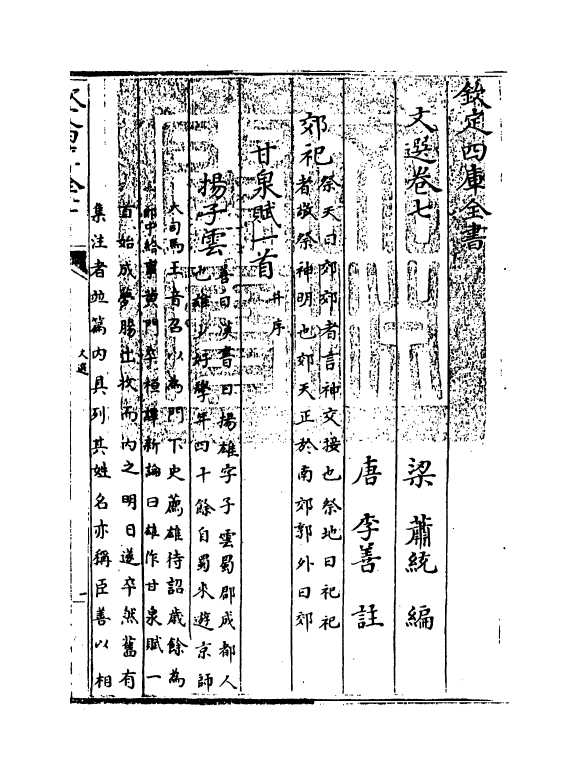 欽定四庫全書
文選卷七
梁 蕭統 編
唐 李善 註
郊祀
祭天曰郊郊者言神交接也祭地曰祀祀
者敬祭神明也郊天正於南郊郭外曰郊
甘泉賦一首
并序
揚子雲
善曰漢書曰揚雄字子雲蜀郡成都人
也雄少好學年四十餘自蜀來遊京師
大司馬王音召以為門下史薦雄待詔歳餘為
郎中給事黄門卒桓譚新論曰雄作甘泉賦一
首始成夢腸出收而内之明日遂卒然舊有
集注者並篇内具列其姓名亦稱臣善以相
文選
一